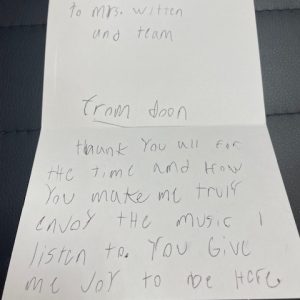 to mrs. witten
and team
from doon
thank You all for
the time and how
You make me truly
enjoy the music I
listen to. You Give
me Joy to be Here.